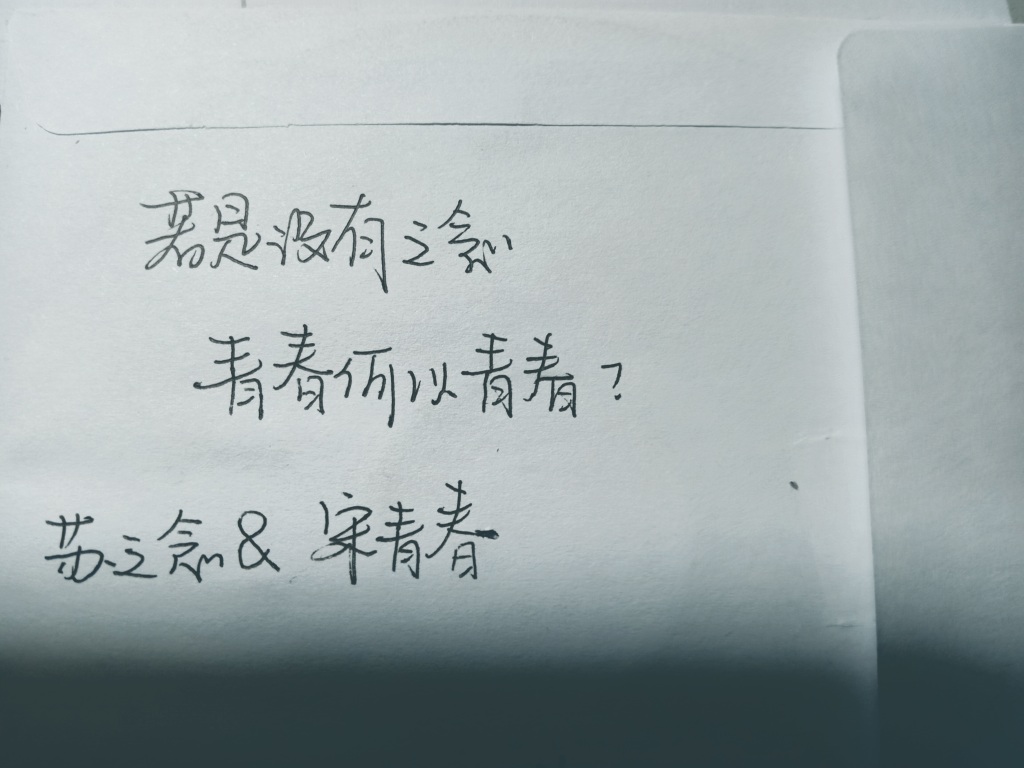 若是没有之念
青春何以青春?
苏之念& 宋青春